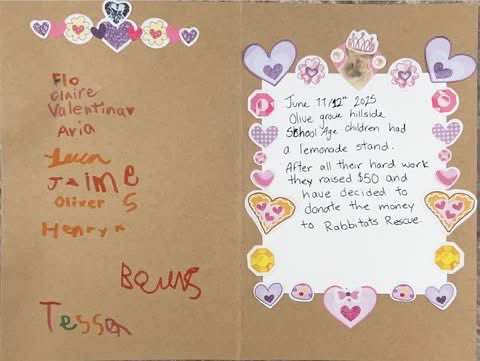 Flo
Claire
Valentina
Aria
Jaime
Oliver S
Henry
Tessa
June 11/12th 2025
Olive grove hillside
School Age children had
a lemonade stand.
After all their hard work
they raised $50 and
have decided to
donate the money
to Rabbitats Rescue.